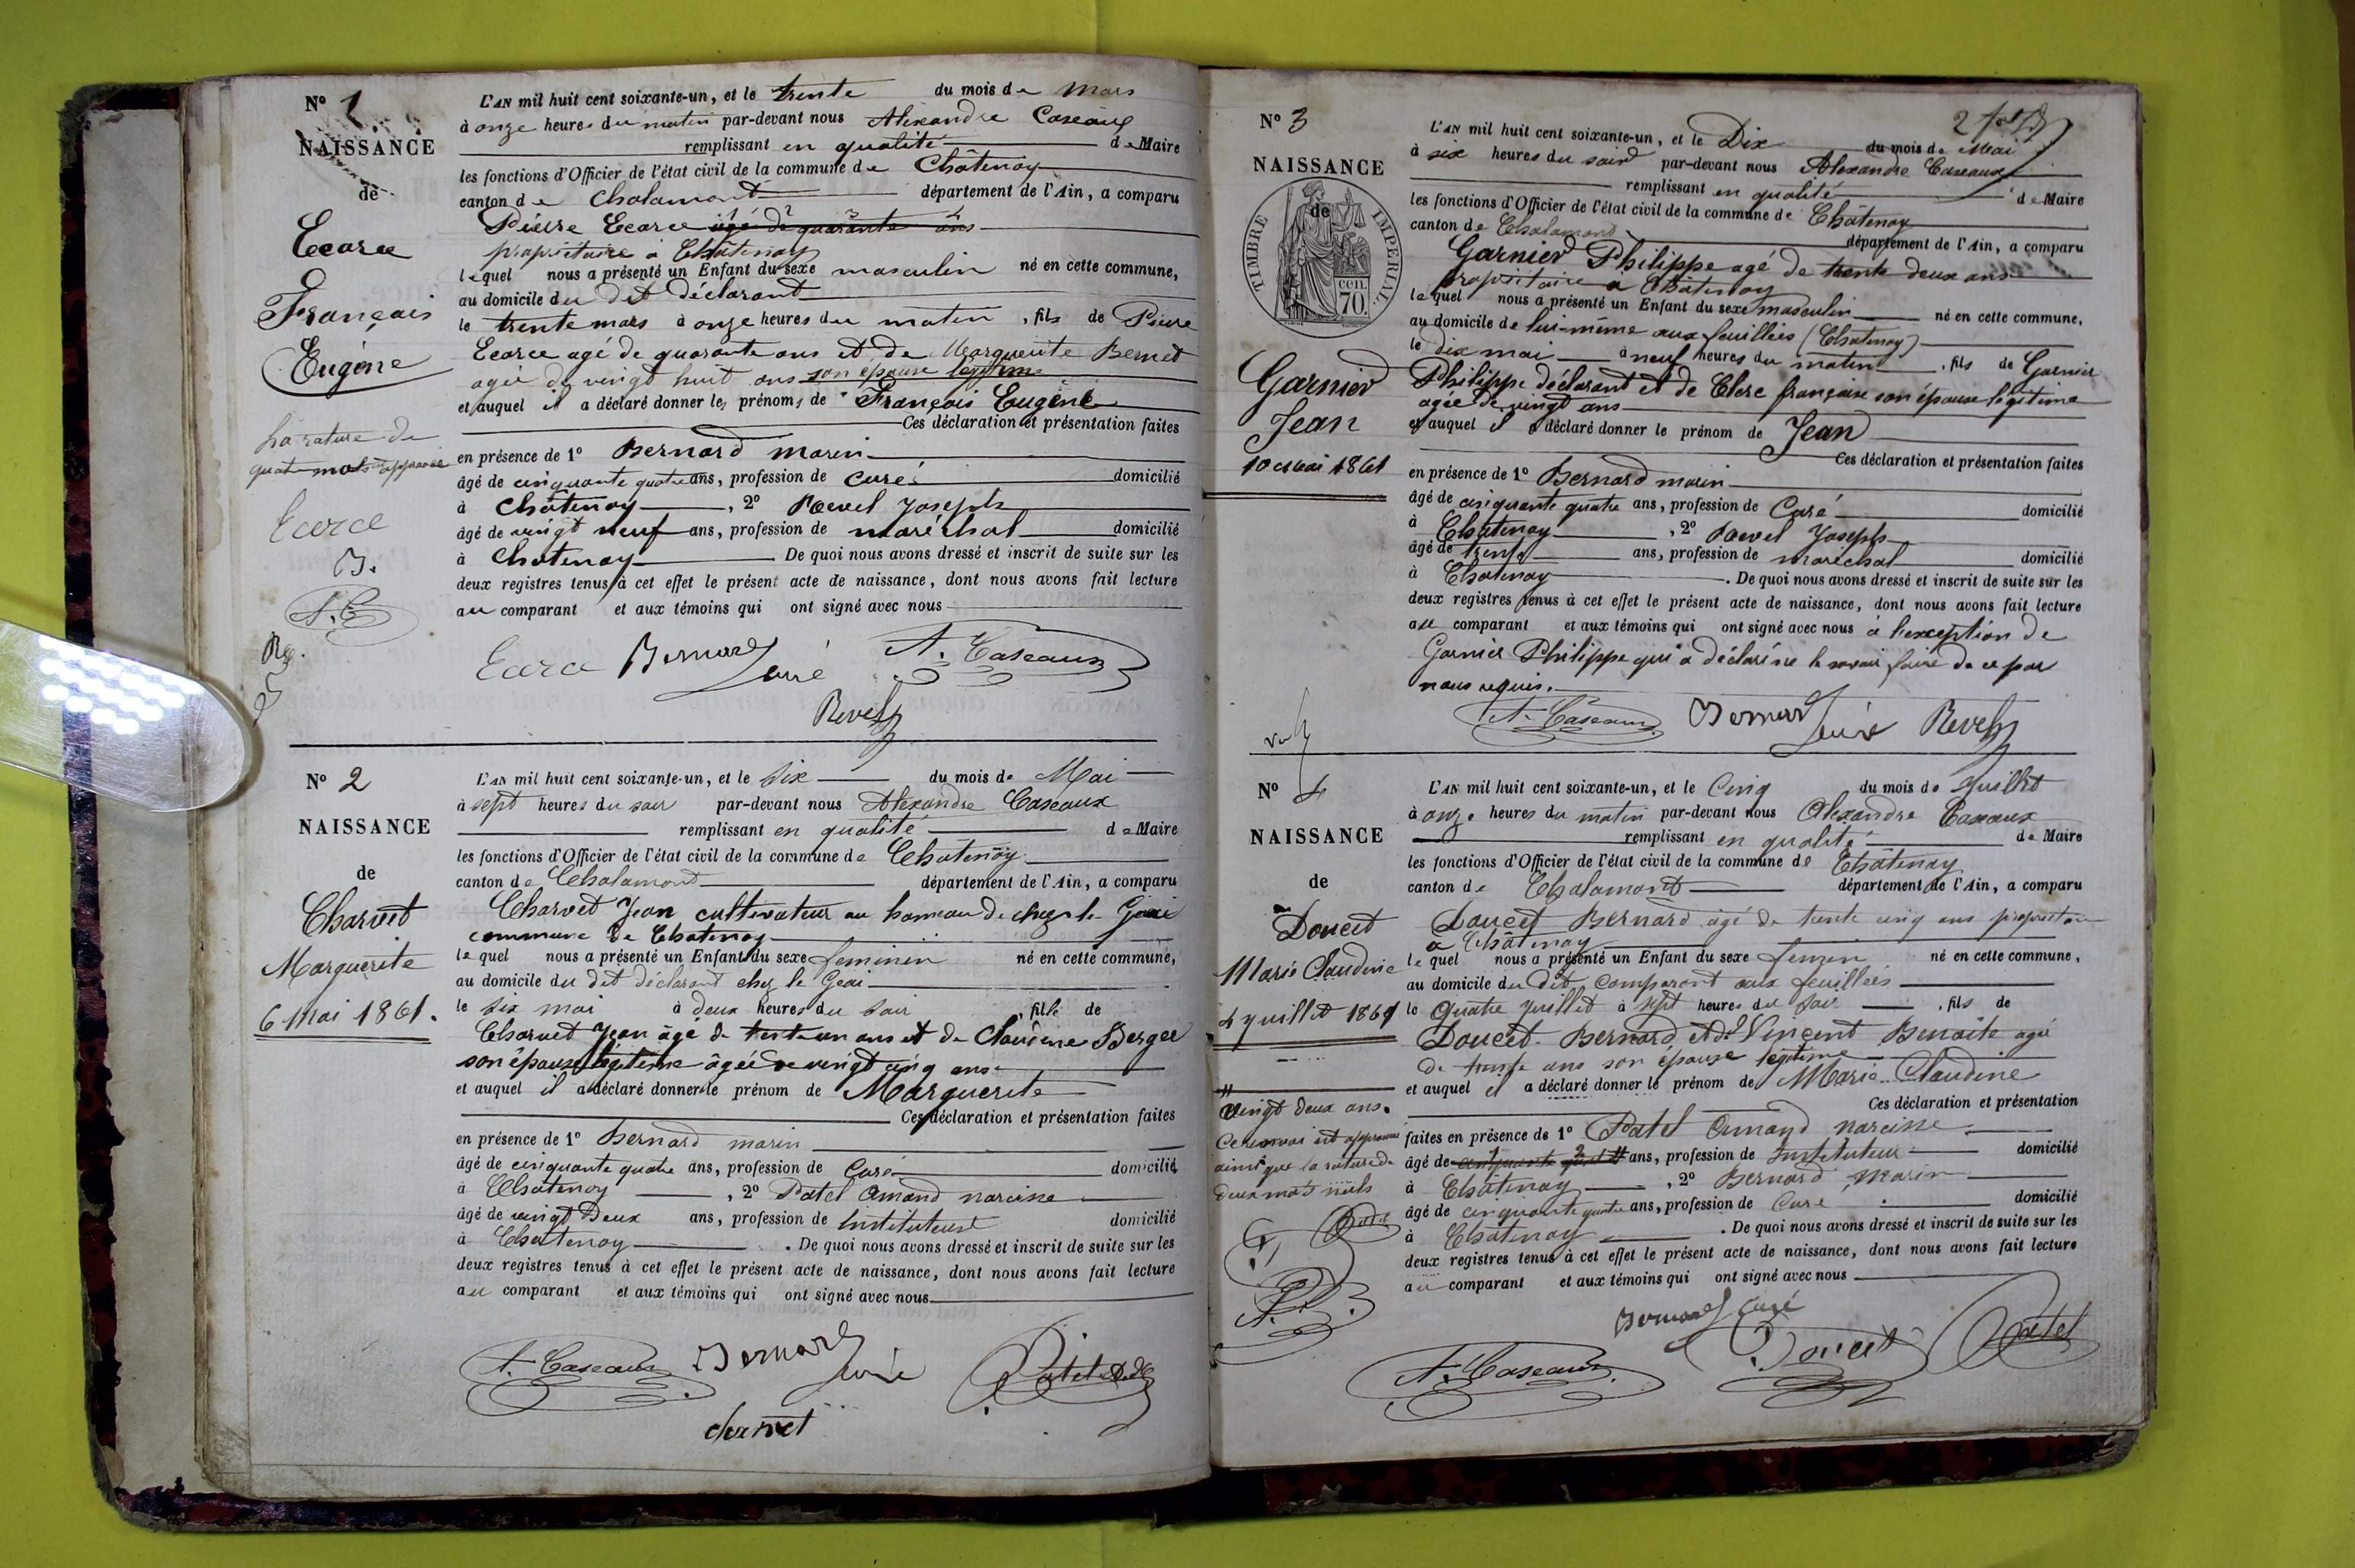 N° 1
NAISSANCE
de
Ecarce
François
Eugène
La rature de
quatre mots approuvée
Ecarce
B.
A.C
L'AN mil huit cent soixante-un, et le trente du mois de Mars
à onze heures du matin par-devant nous Alexandre Caseaux
remplissant en qualité de Maire
les fonctions d'Officier de l'état civil de la commune de Châtenay
canton de Chalamont département de l'Ain, a comparu
Pierre Ecarce âgé de quarante ans
propriétaire à Châtenay
lequel nous a présenté un Enfant du sexe masculin né en cette commune,
au domicile du dit déclarant
le trente mars à onze heures du matin, fils de Pierre
Ecarce agé de quarante ans et de Marguerite Bernet
agée de vingt huit ans son épouse légitime
et auquel il a déclaré donner les prénoms de François Eugène
Ces déclaration et présentation faites
en présence de 1° Bernard marin
âgé de cinquante quatre ans, profession de Curé domicilié
à Châtenay, 2° Revel Joseph
âgé de vingt neuf ans, profession de maréchal domicilié
à Chatenay De quoi nous avons dressé et inscrit de suite sur les
deux registres tenus à cet effet le présent acte de naissance, dont nous avons fait lecture
au comparant et aux témoins qui ont signé avec nous
Ecarce Bernard curé A. Caseaux
Revel
N° 2
NAISSANCE
de
Charvet
Marguerite
6 Mai 1861.
L'AN mil huit cent soixante-un, et le six du mois de Mai
à sept heures du soir par-devant nous Alexandre Caseaux
remplissant en qualité de Maire
les fonctions d'Officier de l'état civil de la commune de Châtenay
canton de Chalamont département de l'Ain, a comparu
Charvet Jean cultivateur au hameau de chez le Geai
commune de Chatenay
lequel nous a présenté un Enfant du sexe feminin né en cette commune,
au domicile du dit déclarant chez le Geai
le six mai à deux heures du soir, fille de
Charvet Jean âgé de trente un ans et de Claudine Berger
son épouse légitime âgée de vingt cinq ans
et auquel il a déclaré donner le prénom de Marguerite
Ces déclaration et présentation faites
en présence de 1° Bernard marin
âgé de cinquante quatre ans, profession de Curé domicilié
à Châtenay, 2° Patel Amand narcisse
âgé de vingt deux ans, profession de Instituteur domicilié
à Chatenay. De quoi nous avons dressé et inscrit de suite sur les
deux registres tenus à cet effet le présent acte de naissance, dont nous avons fait lecture
au comparant et aux témoins qui ont signé avec nous
A. Caseaux Bernard curé Patel
charvet
N° 3
NAISSANCE
de
TIMBRE IMPERIAL
70 cen.
Garnier
Jean
10 mai 1861
L'AN mil huit cent soixante-un, et le Dix du mois de Mai
à six heures du soir par-devant nous Alexandre Caseaux
remplissant en qualité de Maire
les fonctions d'Officier de l'état civil de la commune de Châtenay
canton de Chalamont département de l'Ain, a comparu
Garnier Philippe agé de trente deux ans
propriétaire a Châtenay
lequel nous a présenté un Enfant du sexe masculin né en cette commune,
au domicile de lui-même aux feuillées (Chatenay)
le dix mai à neuf heures du matin, fils de Garnier
Philippe déclarant et de Clerc françoise son épouse légitime
agée de vingt ans
et auquel il a déclaré donner le prénom de Jean
Ces déclaration et présentation faites
en présence de 1° Bernard marin
âgé de cinquante quatre ans, profession de Curé domicilié
à Châtenay, 2° Revel Joseph
âgé de trente ans, profession de maréchal domicilié
à Chatenay. De quoi nous avons dressé et inscrit de suite sur les
deux registres tenus à cet effet le présent acte de naissance, dont nous avons fait lecture
au comparant et aux témoins qui ont signé avec nous à l'exception de
Garnier Philippe qui a déclaré ne le savoir faire de ce par
nous requis.
A. Caseaux Bernard curé Revel
N° 4
NAISSANCE
de
Doucet
Marie Claudine
4 juillet 1861
vingt deux ans.
Ce renvoi est approuvé
ainsi que la rature de
deux mots nuls
L'AN mil huit cent soixante-un, et le Cinq du mois de Juillet
à onze heures du matin par-devant nous Alexandre Caseaux
remplissant en qualité de Maire
les fonctions d'Officier de l'état civil de la commune de Châtenay
canton de Chalamont département de l'Ain, a comparu
Doucet Bernard âgé de trente cinq ans propriétaire
a Châtenay
lequel nous a présenté un Enfant du sexe femin né en cette commune,
au domicile du dit comparant aux feuillées
le Quatre Juillet à sept heures du soir, fils de
Doucet Bernard et de Vincent Benoite agée
de trente ans son épouse légitime
et auquel il a déclaré donner le prénom de Marie Claudine
Ces déclaration et présentation
faites en présence de 1° Patel Amand narcisse
âgé de cinquante quatre ans, profession de Instituteur domicilié
à Chatenay, 2° Bernard Marin
âgé de cinquante quatre ans, profession de Curé domicilié
à Châtenay. De quoi nous avons dressé et inscrit de suite sur les
deux registres tenus à cet effet le présent acte de naissance, dont nous avons fait lecture
au comparant et aux témoins qui ont signé avec nous
Bernard curé
A. Caseaux Doucet Patel